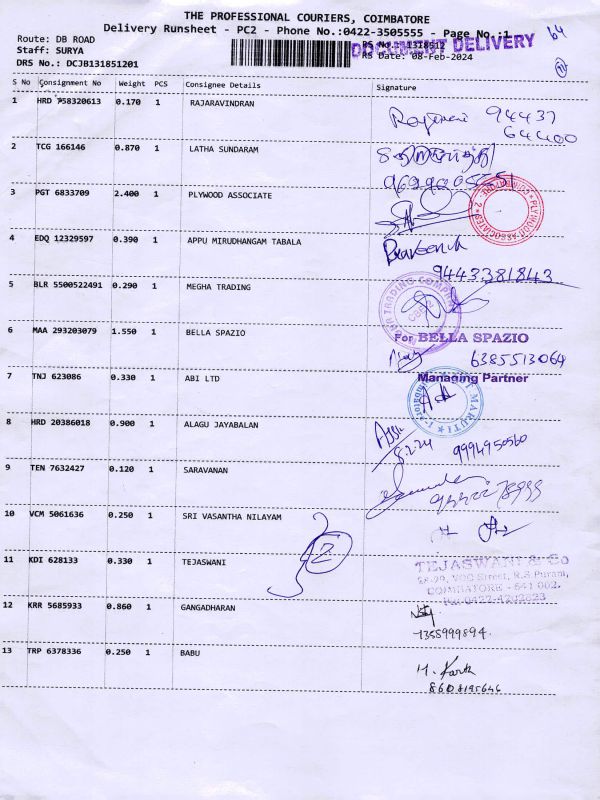 THE PROFESSIONAL COURIERS, COIMBATORE
Delivery Runsheet - PC2 - Phone No.:0422-3505555 - Page No.:1
Route: DB ROAD
Staff: SURYA
DRS No.: DCJB131851201
DOCUMENT DELIVERY
64
RS Date: 08-Feb-2024
S No Consignment No Weight PCS Consignee Details Signature
1 HRD 758320613 0.170 1 RAJARAVINDRAN
94437
64400
2 TCG 166146 0.870 1 LATHA SUNDARAM
3 PGT 6833709 2.400 1 PLYWOOD ASSOCIATE
PLYWOOD ASSOCIATES
4 EDQ 12329597 0.390 1 APPU MIRUDHANGAM TABALA
9443381843
5 BLR 5500522491 0.290 1 MEGHA TRADING
TRADING COMPANY
6 MAA 293203079 1.550 1 BELLA SPAZIO
For BELLA SPAZIO
6385513064
Managing Partner
7 TNJ 623086 0.330 1 ABI LTD
MARUTI
8 HRD 20386018 0.900 1 ALAGU JAYABALAN
8.2.24 9994950560
9 TEN 7632427 0.120 1 SARAVANAN
10 VCM 5061636 0.250 1 SRI VASANTHA NILAYAM
11 KDI 628133 0.330 1 TEJASWANI
TEJASWANI & Co
VCC Street, R.S Puram,
COIMBATORE - 641 002.
12 KRR 5685933 0.860 1 GANGADHARAN
7355999894.
13 TRP 6378336 0.250 1 BABU
8608195646